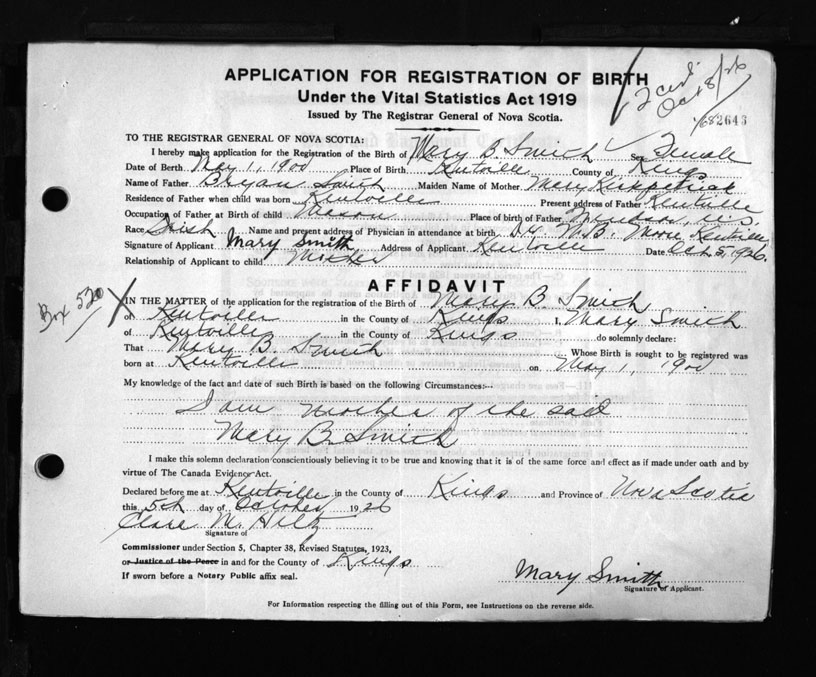 APPLICATION FOR REGISTRATION OF BIRTH
Under the Vital Statistics Act 1919
Issued by The Registrar General of Nova Scotia.
2 cert.
Oct 8/26
2643
TO THE REGISTRAR GENERAL OF NOVA SCOTIA:
I hereby make application for the Registration of the Birth of Mary B. Smith Sex Female
Date of Berth May 1, 1900 Place of Birth Kentville County of Kings
Name of Father Bryan Smith Maiden Name of Mother Mary Kirkpatrick
Residence of Father when child was born Kentville Present address of Father Kentville
Occupation of Father at Birth of child Mason Place of birth of Father Windsor, N.S.
Race Irish Name and present address of Physician in attendance at birth Dr. W.B. Moore Kentville
Signature of Applicant Mary Smith Address of Applicant Kentville Date Oct 5, 1926
Relationship of Applicant to child Mother
AFFIDAVIT
Box 520
IN THE MATTER of the application for the registration of the Birth of Mary B Smith
of Kentville in the County of Kings I, Mary Smith
of Kentville in the County of Kings do solemnly declare:
That Mary B. Smith Whose Birth is sought to be registered was
born at Kentville on May 1, 1900
My knowledge of the fact and date of such Birth is based on the following Circumstances:--
I am mother of the said
Mary B. Smith
I make this solemn declaration conscientiously believing it to be true and knowing that it is of the same force and effect as if made under oath and by
virtue of The Canada Evidence Act.
Declared before me at Kentville in the County of Kings and Province of Nova Scotia
this 5th day of October 1926
Clare M. Hiltz
Signature of
Commissioner under Section 5, Chapter 38, Revised Statutes, 1923,
or Justice of the Peace in and for the County of Kings
If sworn before a Notary Public affix seal.
Mary Smith
Signature of Applicant.
For Information respecting the filling out of this Form, see Instructions on the reverse side.